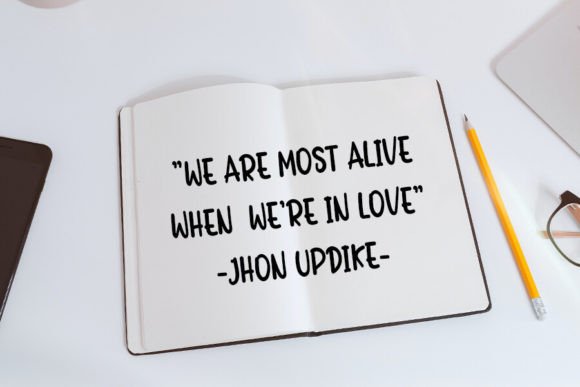 "WE ARE MOST ALIVE
WHEN WE'RE IN LOVE"
-JHON UPDIKE-